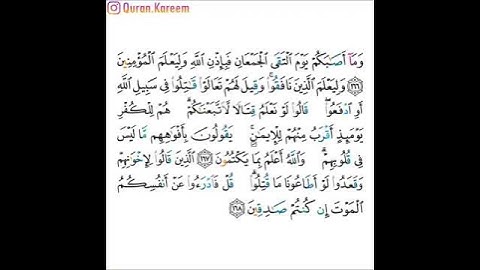 Quran.Kareem
وَمَآ أَصَٰبَكُمْ يَوْمَ ٱلْتَقَى ٱلْجَمْعَانِ فَبِإِذْنِ ٱللَّهِ وَلِيَعْلَمَ ٱلْمُؤْمِنِينَ
١٦٦ وَلِيَعْلَمَ ٱلَّذِينَ نَافَقُوا۟ وَقِيلَ لَهُمْ تَعَالَوْا۟ قَٰتِلُوا۟ فِى سَبِيلِ ٱللَّهِ
أَوِ ٱدْفَعُوا۟ قَالُوا۟ لَوْ نَعْلَمُ قِتَالًا لَّٱتَّبَعْنَٰكُمْ هُمْ لِلْكُفْرِ
يَوْمَئِذٍ أَقْرَبُ مِنْهُمْ لِلْإِيمَٰنِ يَقُولُونَ بِأَفْوَٰهِهِم مَّا لَيْسَ
فِى قُلُوبِهِمْ وَٱللَّهُ أَعْلَمُ بِمَا يَكْتُمُونَ ١٦٧ ٱلَّذِينَ قَالُوا۟ لِإِخْوَٰنِهِمْ
وَقَعَدُوا۟ لَوْ أَطَاعُونَا مَا قُتِلُوا۟ قُلْ فَٱدْرَءُوا۟ عَنْ أَنفُسِكُمُ
ٱلْمَوْتَ إِن كُنتُمْ صَٰدِقِينَ ١٦٨